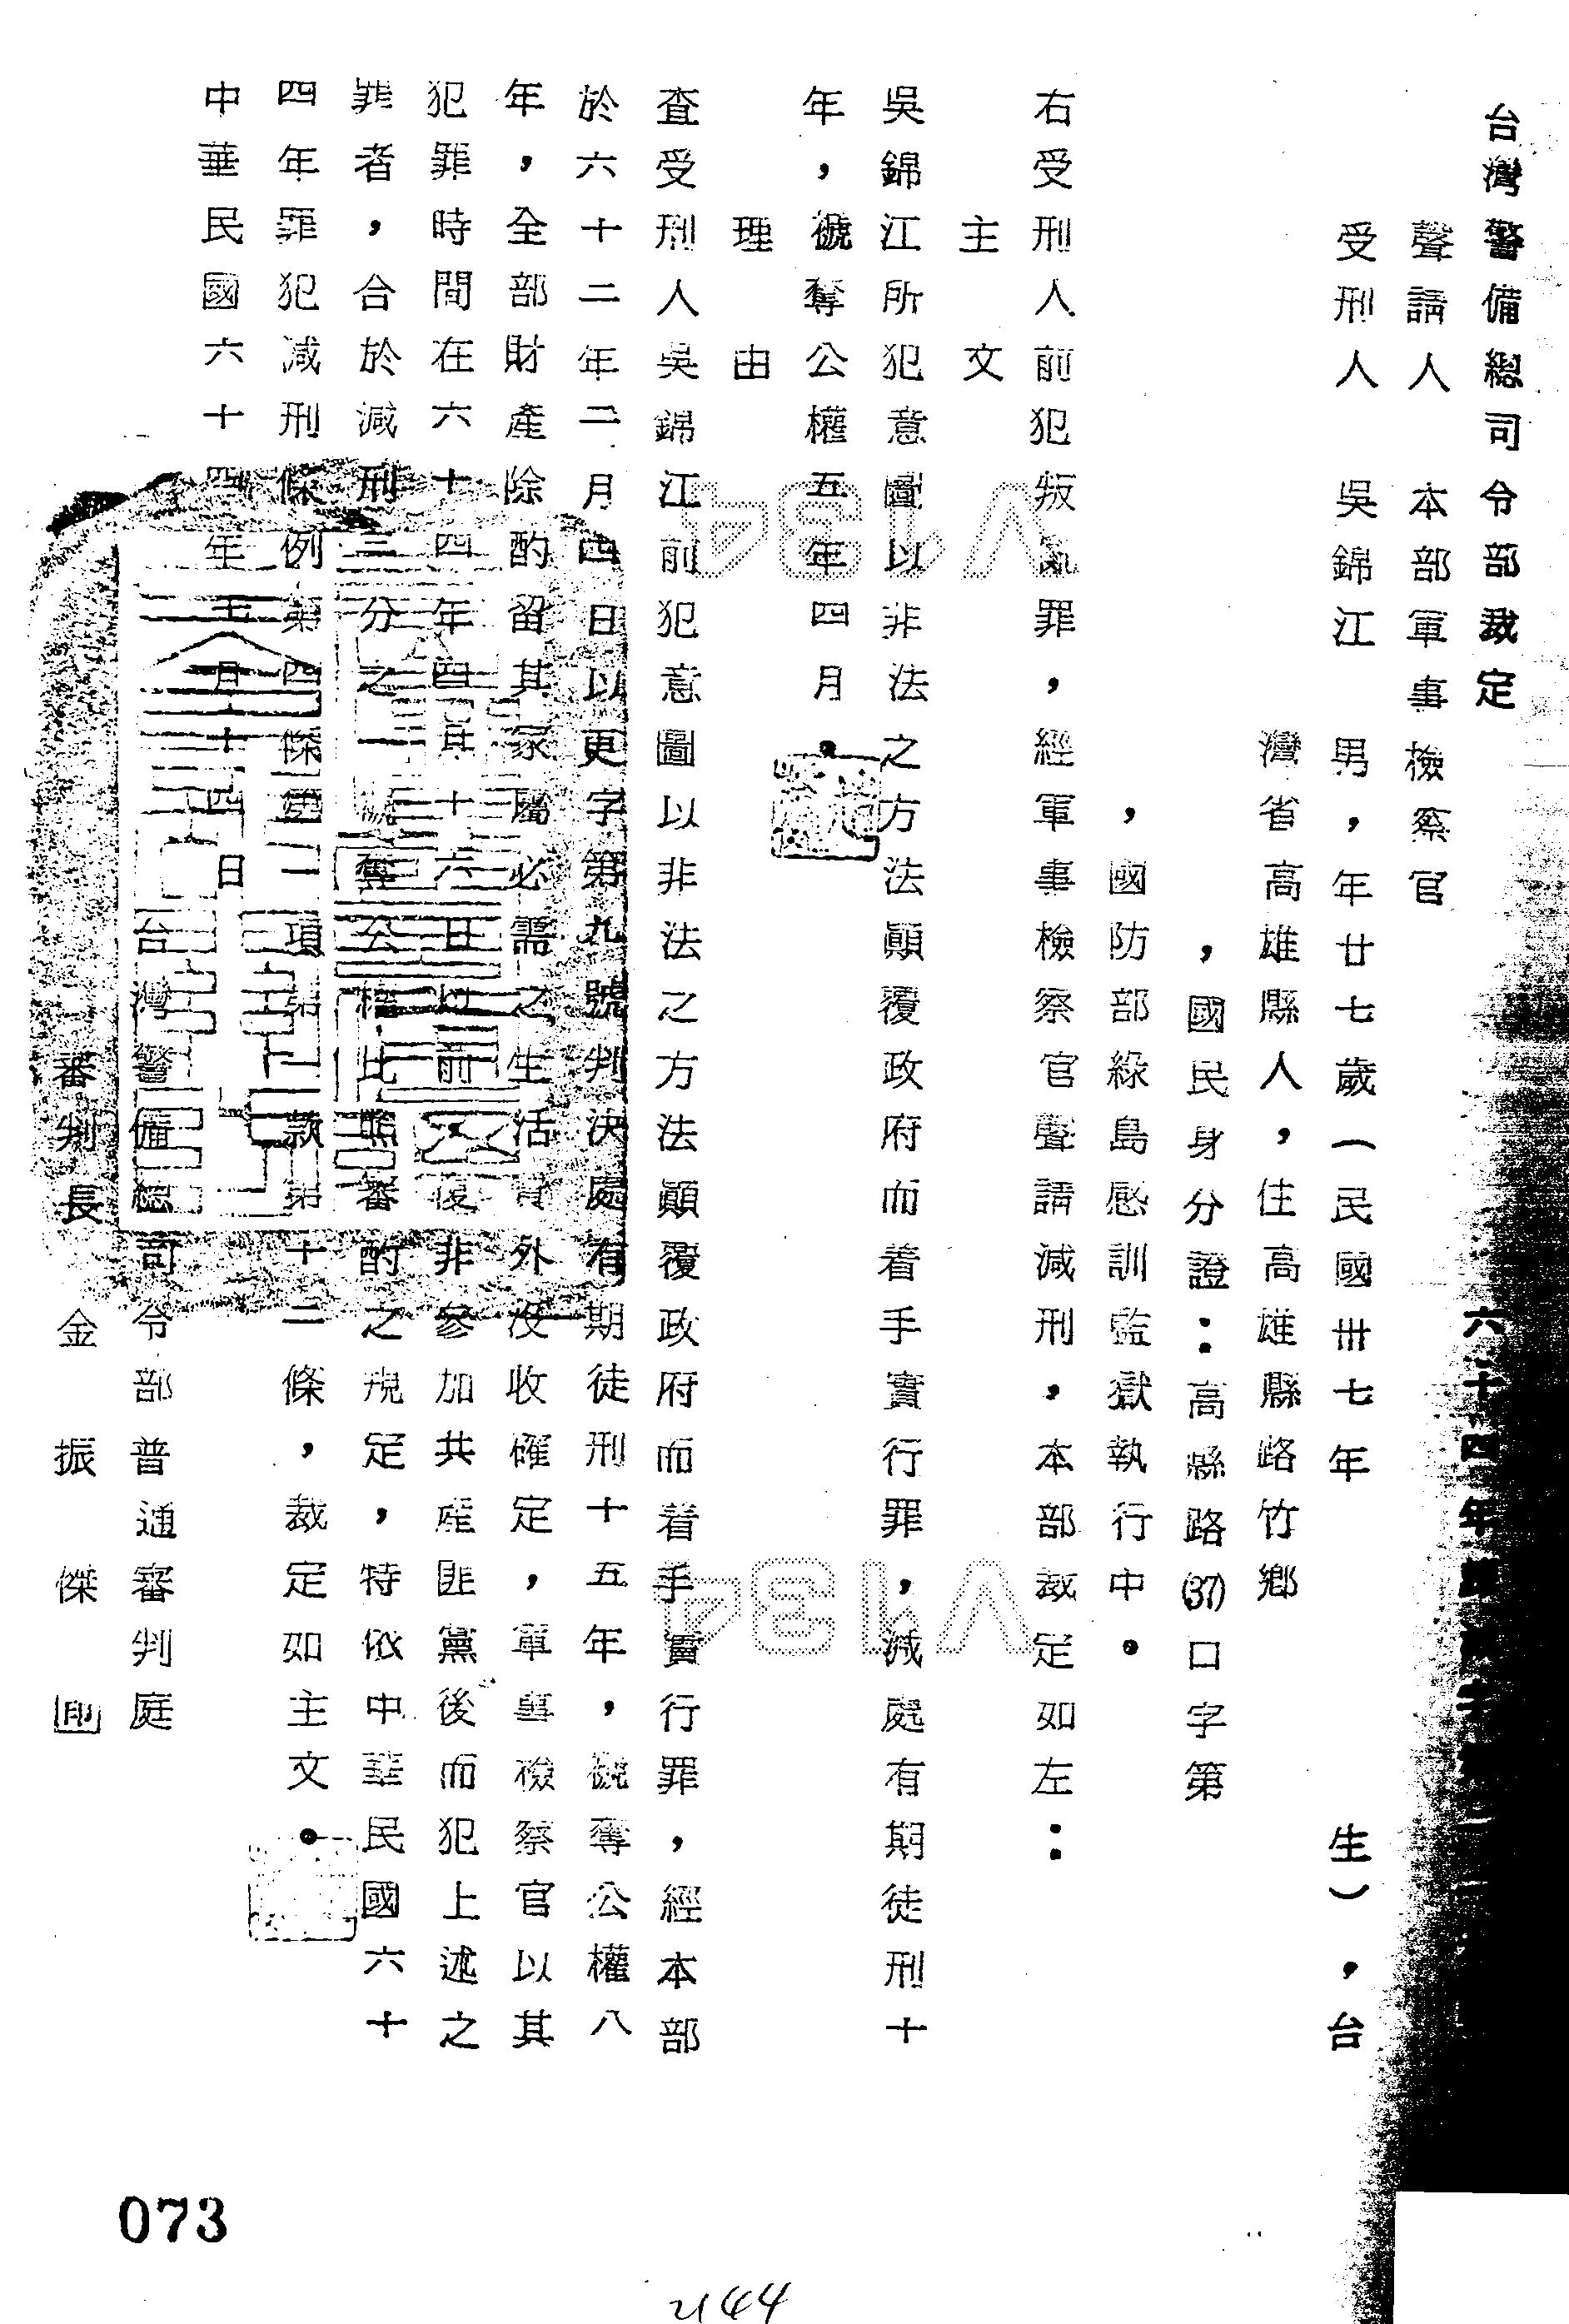 台灣警備總司令部裁定　六十四年
聲請人　本部軍事檢察官
受刑人　吳錦江　男，年廿七歲（民國卅七年　生），台
灣省高雄縣人，住高雄縣路竹鄉
，國民身分證：高縣路(37)口字第
，國防部綠島感訓監獄執行中。
右受刑人前犯叛亂罪，經軍事檢察官聲請減刑，本部裁定如左：
主文
吳錦江所犯意圖以非法之方法顚覆政府而着手實行罪，減處有期徒刑十
年，褫奪公權五年四月。
理由
查受刑人吳錦江前犯意圖以非法之方法顚覆政府而着手實行罪，經本部
於六十二年二月四日以更字第九號判決處有期徒刑十五年，褫奪公權八
年，全部財產除酌留其家屬必需之生活費外沒收確定，軍事檢察官以其
犯罪時間在六十四年四月十六日以前，復非參加共產匪黨後而犯上述之
罪者，合於減刑三分之一褫奪公權比照審酌之規定，特依中華民國六十
四年罪犯減刑條例第四條第一項第二款第十二條，裁定如主文。
中華民國六十四年七月十四日
台灣警備總司令部普通審判庭
審判長　金振傑　印
V134
V134
073
2144